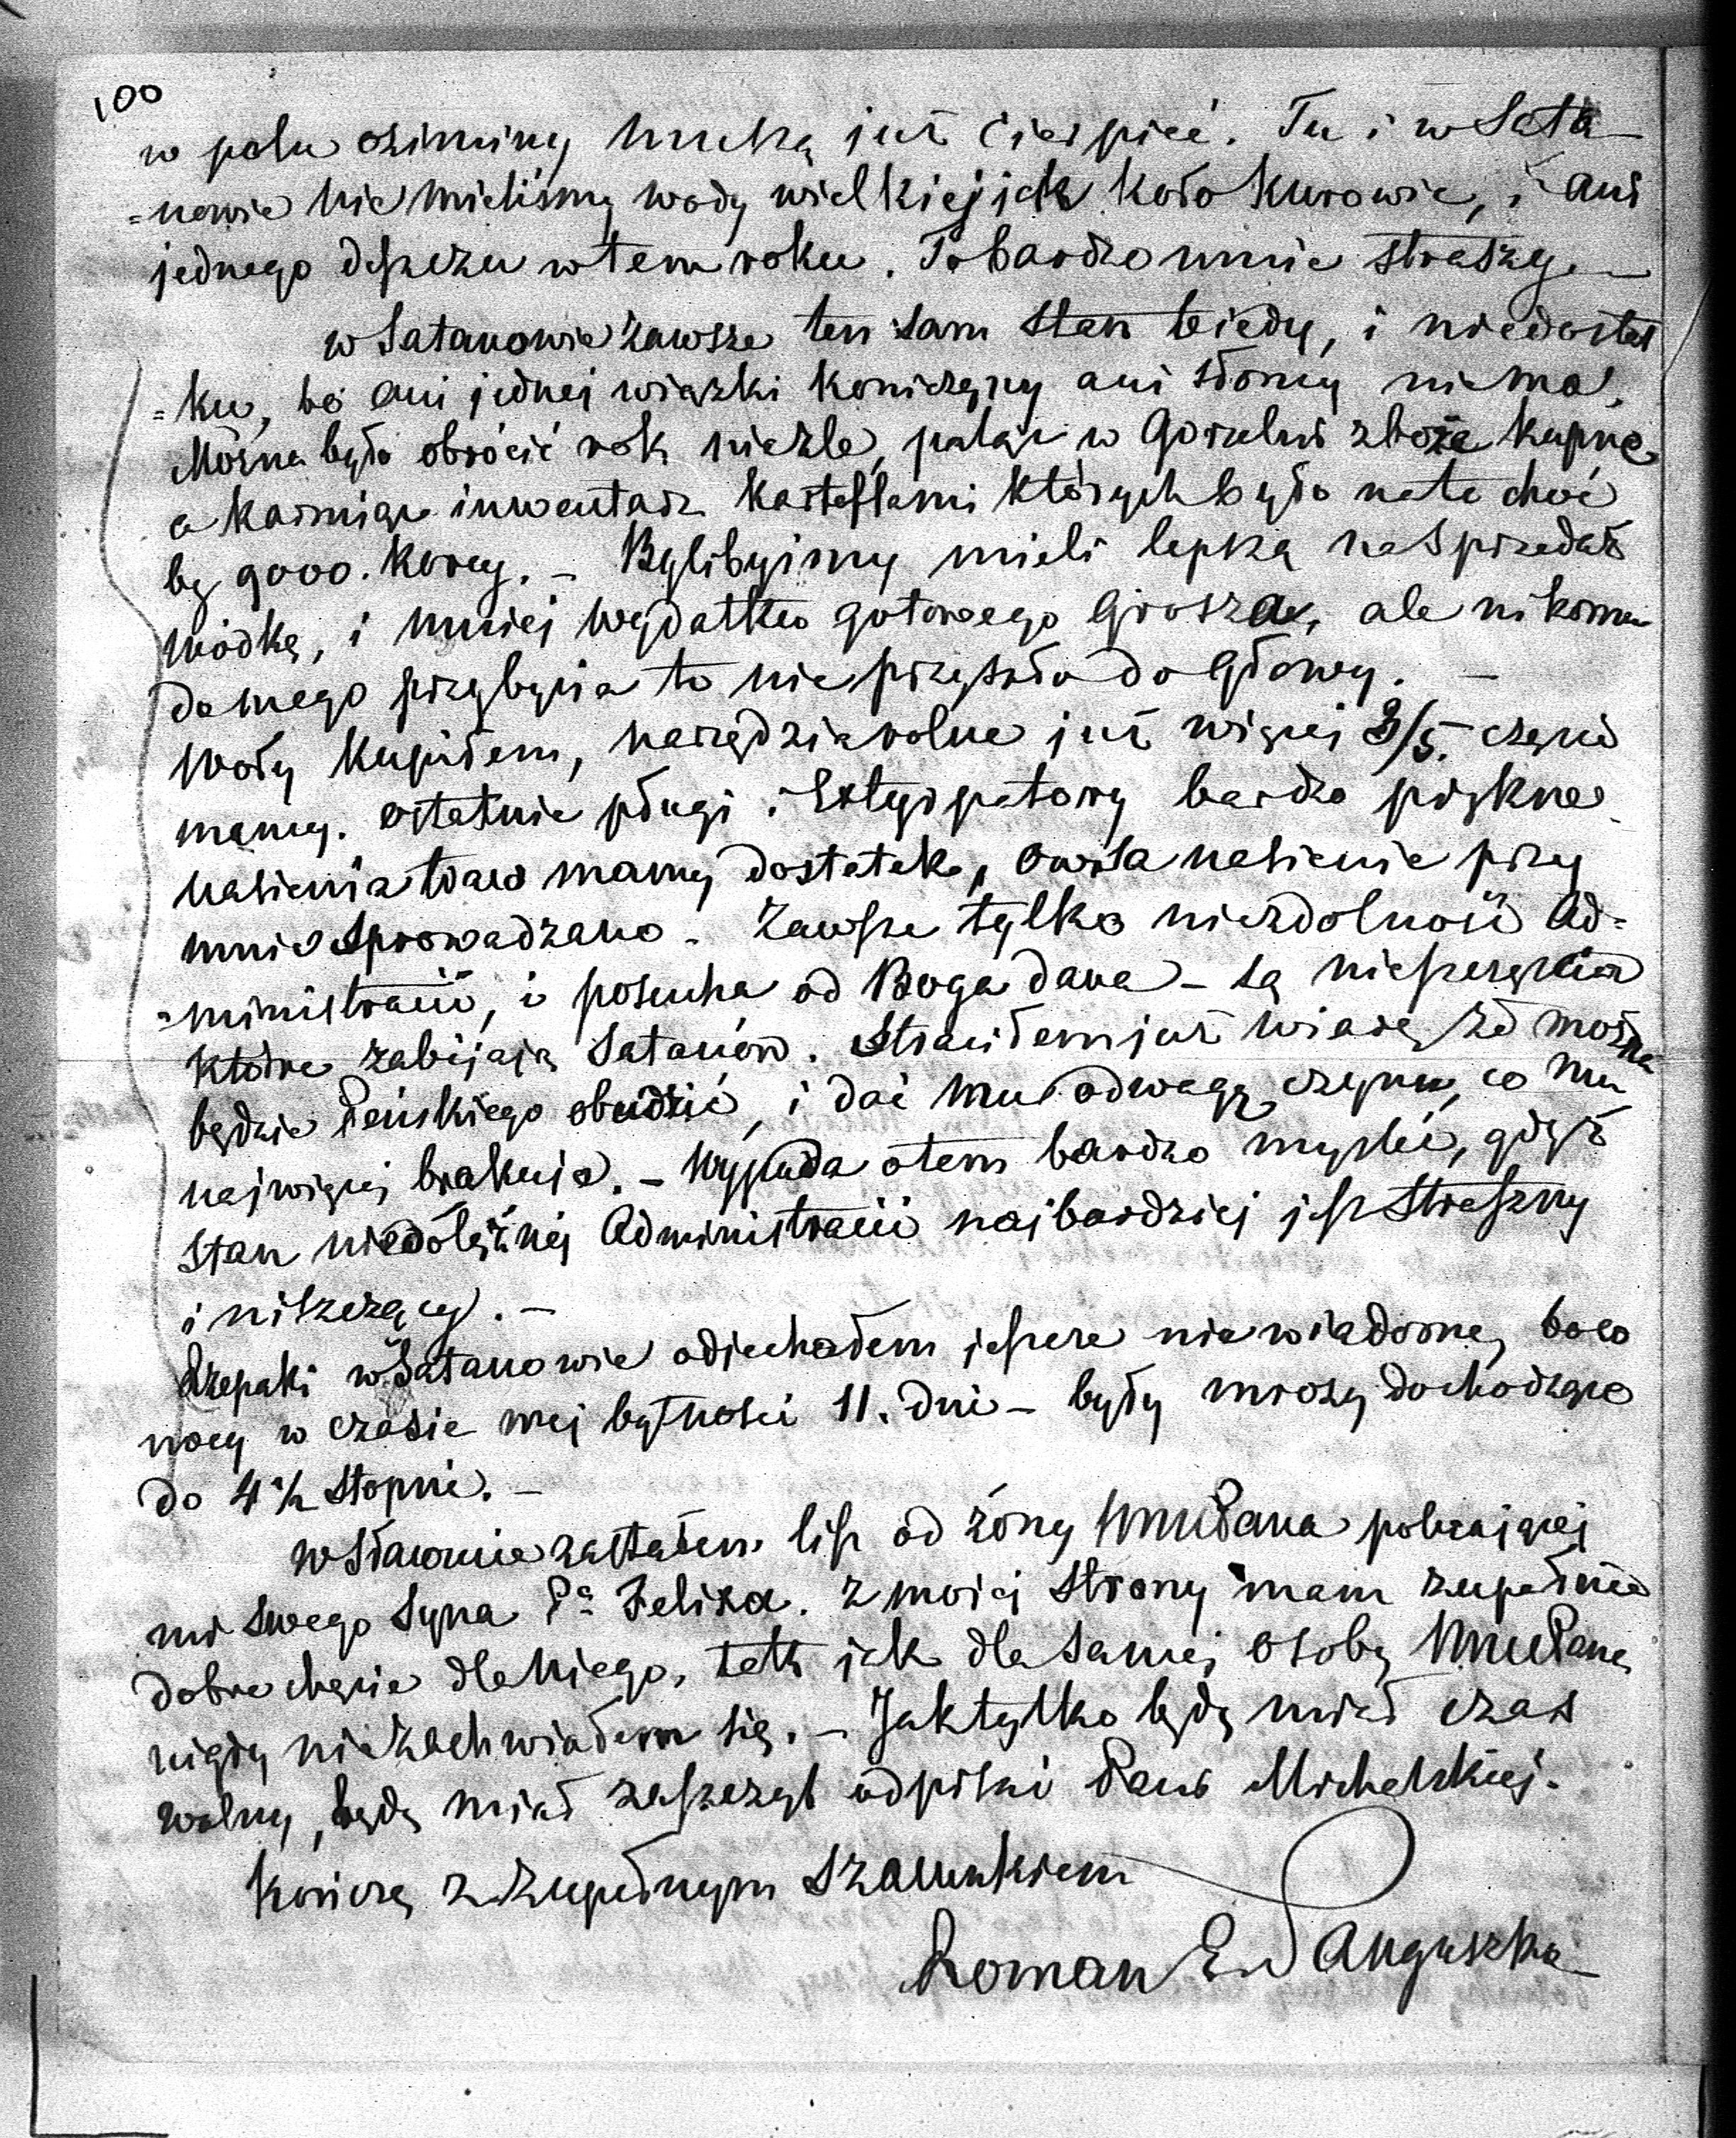 100
w polu oziminy muszą już cierpieć. Tu i w Sata-
=nowie nie mieliśmy wody wielkiej jak koło Kurowic, i ani
jednego deszczu w tem roku. To bardzo mnie straszy. —
w Satanowie zawsze ten sam stan biedy, i niedostat
=ku, bo ani jednej wiązki koniczyny ani słomy niema.
Można było obrócić rok nieźle, paląc w Gorzelni zboże kupne
a karmiąc inwentarz kartoflami których było na to choć
by 9000. korcy. – Bylibyśmy mieli lepką na sprzedaż
wódkę, i mniej wydatku gotowego Grosza, ale nikomu
do mego przybycia to nie przyszło do głowy. —
Woły kupiłem, narzędzia rolne już więcej 3/5. części
mamy. Ostatnie pługi i Extyrpatory bardzo piękne.
Nasienia traw mamy dostatek, owsa nasienie przy
mnie sprowadzano. Zawsze tylko niezdolność Ad=
=ministracii, i posucha od Boga dana – są nieszczęścia
które zabijają Satanów. Straciłem już wiarę że można
będzie Peńskiego obudzić, i dać mu odwagę czynu, co mu
najwięcej brakuje. – Wypada o tem bardzo myśleć, gdyż
stan niedołężnej Administracii najbardziej jest straszny
i niszczący. —
Rzepaki w Satanowie odjechałem jeszcze niewiadome, bo co
nocy w czasie mej bytności 11. dni – były mrozy dochodzące
do 4 ½ stopni. —
w Sławucie zastałem list od żony WmuPana polecającej
mi swego syna Pa Felixa. Z mojej strony mam zupełnie
dobre chęcie dla niego, tak jak dla samej osoby WmuPana
nigdy niezachwiałem się. – Jak tylko będę miał czas
wolny, będę miał zaszczyt odpisać Pani Michalskiej.
Kończę z zupełnym szacunkiem
Roman X. Sanguszko